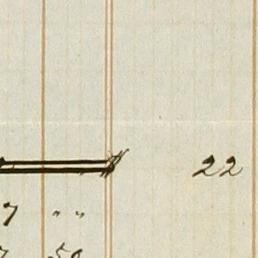 22
7 " "
7 50